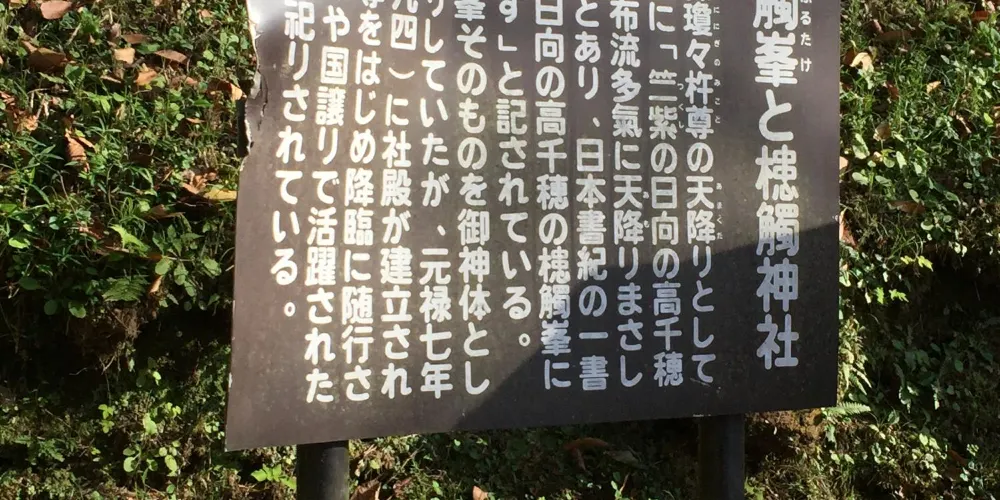 觸峯と槵觸神社
瓊々杵尊の天降りとして
に「竺紫の日向の高千穂
布流多氣に天降りまさし
とあり、日本書紀の一書
日向の高千穂の槵觸峯に
す」と記されている。
峯そのものを御神体とし
りしていたが、元禄七年
九四）に社殿が建立され
等をはじめ降臨に随行さ
や国譲りで活躍された
祀りされている。